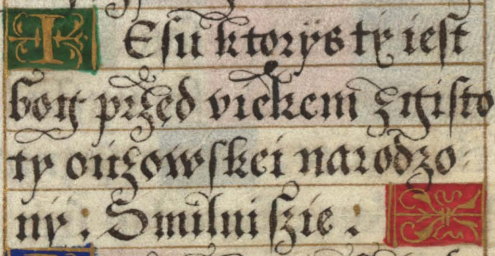 IEsu ktorÿs tÿ iest
bog przed viekem z gisto
ty oiczowskei narodzo
nÿ : Smilui szie :